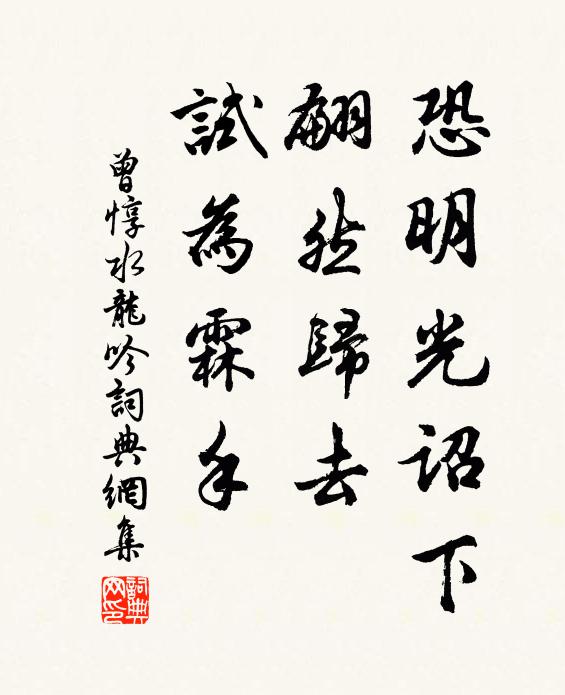 恐明光詔下
翩然歸去
試為霖手
曾惇水龍吟詞典網集
詞典网印